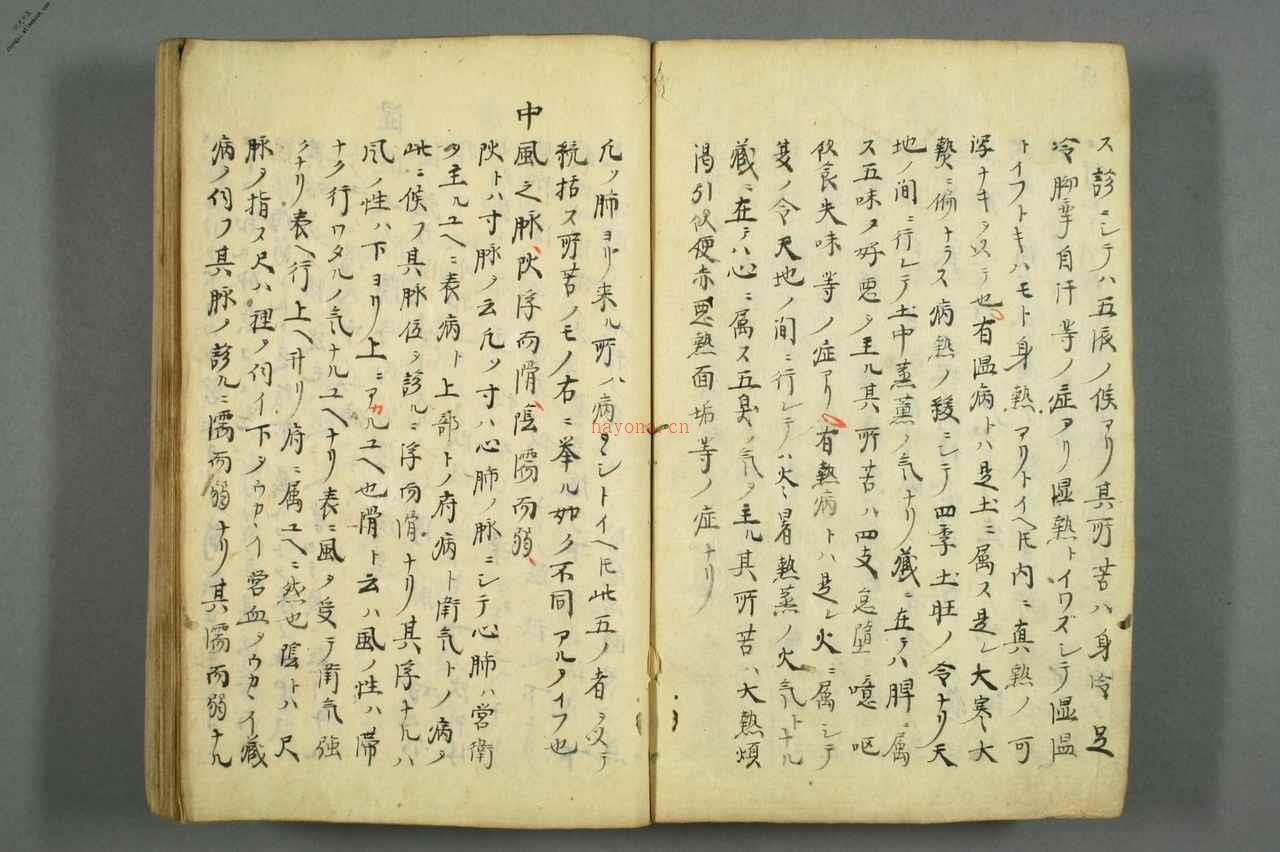 ス診ニシテハ五辰ノ候アリ其所苦ハ身冷足
冷脚攣自汗等ノ症アリ湿熱トイワズシテ湿温
トイフトキハモト身熱アリトイヘ𪜈内ニ真熱ノ可
ナキヲ以テ也有温病トハ是土ニ属ス是レ大寒大
熱ニ偏ナラス病熱ノ緩ニシテ四季土旺ノ令ナリ天
地ノ間ニ行レテ土中蒸薫ノ気ナリ蔵ニ在テハ脾ニ属
ス五味ヲ好悪ヲ主ル其所苦ハ四支怠墮噫呕
飲食失味等ノ症アリ有熱病トハ是レ火ニ属シテ
夏ノ令天地ノ間ニ行レテハ火ニ暑熱蒸ノ火気トナル
蔵ニ在テハ心ニ属ス五臭ノ気ヲ主ル其所苦ハ大熱煩
渇引飲便赤悪熱面垢等ノ症ナリ
凡ソ肺ヨリ来ル所ノ病多シトイヘ𪜈此五ノ者ヲ以テ
統括ス所苦ノモノ右ニ挙ル如ク不同アルノイフ也
中風之脉陽浮而滑陰濡而弱
陽トハ寸脉ヲ云凡ソ寸ハ心肺ノ脉ニシテ心肺ハ営衛
ヲ主ルユヘニ表病ト上部トノ府病ト衛気トノ病ヲ
此ニ候フ其脉位ヲ診ルニ浮而滑ナリ其浮ナルハ
風ノ性ハ下ヨリ上ニアカルユヘ也滑ト云ハ風ノ性ハ滞
ナク行ワタルノ気ナルユヘナリ表ニ風ヲ受テ衛気強
クナリ表ヘ行上ヘ升リ府ニ属ユヘニ然也陰トハ尺
脉ヲ指ス尺ハ裡ヲ伺イ下ヲウカヽイ営血ヲウカヽイ蔵
病ノ伺フ其脉ノ診ルニ濡而弱ナリ其濡而弱ナル
hayona.cn